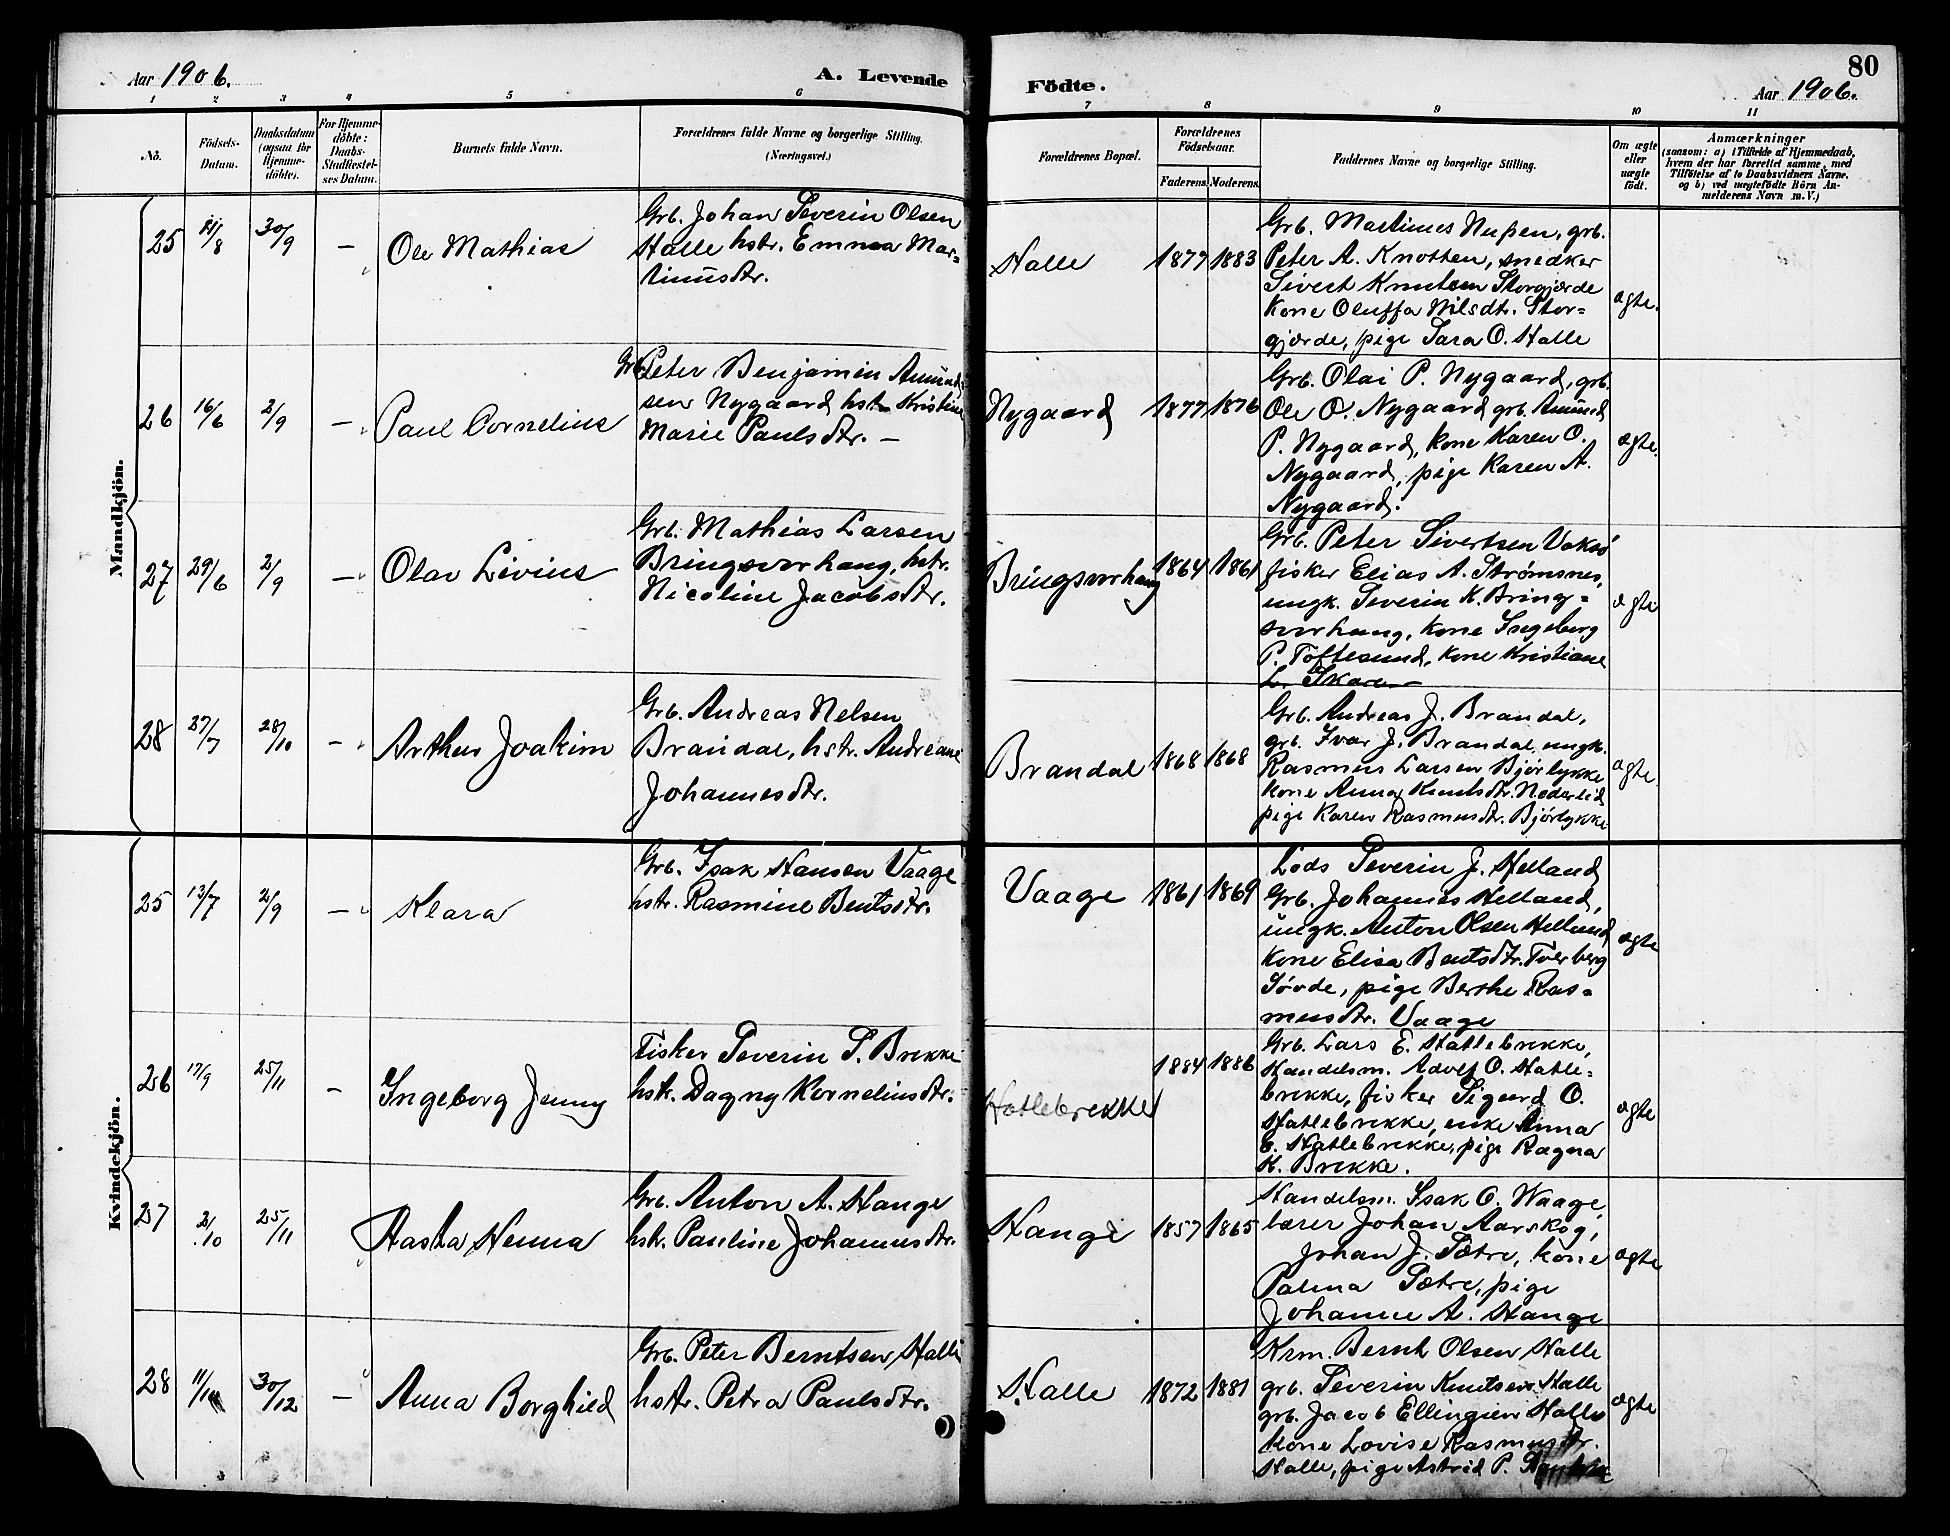 Aar 1906.
A. Levende
Födte.
80
Aar 1906.
1 2 3 4 5 6 7 8 9 10 11
No.
Födsels-
Datum.
Daabsdatum
(ogsaa for
Hjemme-
döbte).
For Hjemme-
döbte:
Daabs-
Stadfæstel-
ses Datum.
Barnets fulde Navn.
Forældrenes fulde Navne og borgerlige Stilling.
(Næringsvei.)
Forældrenes Bopæl.
Forældrenes
Födselsaar.
Faderens.
Moderens.
Faddernes Navne og borgerlige Stilling.
Om ægte
eller
uægte
födt.
Anmærkninger
(saasom: a) i Tilfælde af Hjemmedaab,
hvem der har forrettet samme, med
Tilföielse af to Daabsvidners Navne.
og b) ved uægtefödte Börn An-
melderens Navn m. V.)
Mandkjön.
25
/8
30/9
—
Ole Mathias
Grb. Johan Severin Olsen
Halle hstr. Emma Mar-
tinusdtr.
Halle
1877
1883
Grb. Martinus Nupen, grb.
Peter A. Knotten, snedker
Sivert Knutsen Storgjærde
kone Oluffa Nilsdtr. Stor-
gjærde, pige Sara O. Halle
ægte.
26
16/6
2/9
—
Paul Cornelius
Grb. Peter Benjamin Amund-
sen Nygaard hstr. Kristine
Marie Paulsdtr. —
Nygaard
1877
1876
Grb. Olai P. Nygaard, grb.
Ole O. Nygaard grb. Amund
P. Nygaard, kone Karen O.
Nygaard, pige Karen A.
Nygaard.
ægte.
27
29/6
2/9
—
Olav Livius
Grb. Mathias Larsen
Bringsvorhaug, hstr.
Nicoline Jacobsdtr.
Bringsvorhaug
1864
1861
Grb. Peter Sivertsen Voksø
fisker Elias A. Strømsnes,
ungk. Severin K. Bring-
svorhaug, kone Ingeborg
P. Toftesund, kone Kristiane
L. Skare
ægte
28
27/7
28/10
—
Arthur Joakim
Grb. Andreas Nelsen
Brandal, hstr. Andreane
Johannesdtr.
Brandal
1868
1868
Grb. Andreas J. Brandal,
grb. Ivar J. Brandal, ungk.
Rasmus Larsen Bjørlykke
kone Anna Knutsdtr. Nøderlid
pige Karen Rasmusdtr. Bjørlykke
ægte.
Kvindekjön.
25
13/7
2/9
—
Klara
Grb. Isak Hansen Vaage
hstr. Rasmine Bentsdtr.
Vaage
1861
1869
Lods Severin J. Helland
Grb. Johannes Helland,
ungk. Anton Olsen Helland
kone Elisa Bentsdtr. Tverberg
Søvde, pige Berthe Ras-
musdtr. Vaage
ægte
26
17/9
25/11
—
Ingeborg Jenny
Fisker Severin S. Brekke
hstr. Dagny Korneliusdtr.
Hatlebrekke
1884
1886
Grb. Lars E. Hatlebrekke,
Handelsm. Adolf O. Hatle-
brekke, fisker Sigurd O.
Hatlebrekke, enke Anna
E. Hatlebrekke, pige Ragna
K. Brekke.
ægte
27
2/10
25/11
Aasta Henna
Grb. Anton A. Hange
hstr. Pauline Johannesdtr.
Hange
1857
1865
Handelsm. Isak O. Waage,
lærer Johan Aarskog,
Johan J. Sætre, kone
Palma Sætre, pige
Johanne A. Hange
ægte
28
11/
30/12
—
Anna Borghild
Grb. Peter Berntsen Halle
hstr. Petra Paulsdtr.
Halle
1872
1881
Krm. Bernt Olsen Halle
grb. Severin Knutsen Halle
grb. Jacob Ellingsen Halle
kone Lovise Rasmusdtr.
Halle, pige Astrid P.
ægte